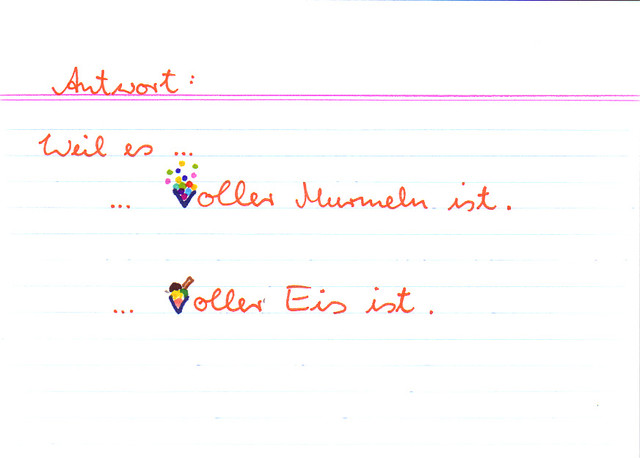 Antwort:
Weil es ...
... Voller Murmeln ist.
... Voller Eis ist.